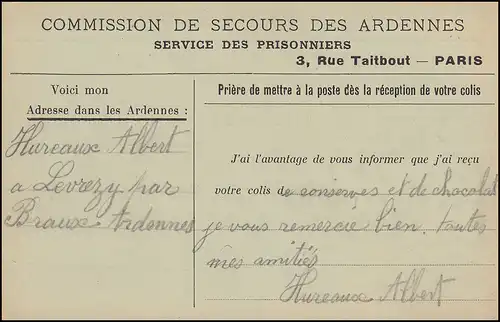 COMMISSION DE SECOURS DES ARDENNES
SERVICE DES PRISONNIERS
3, Rue Taitbout — PARIS
Voici mon
Adresse dans les Ardennes :
Hureaux Albert
a Levrezy par
Braux Ardennes
Prière de mettre à la poste dès la réception de votre colis
J'ai l'avantage de vous informer que j'ai reçu
votre colis de conserves et de chocolat
je vous remercie bien. toutes
mes amitiés
Hureaux Albert